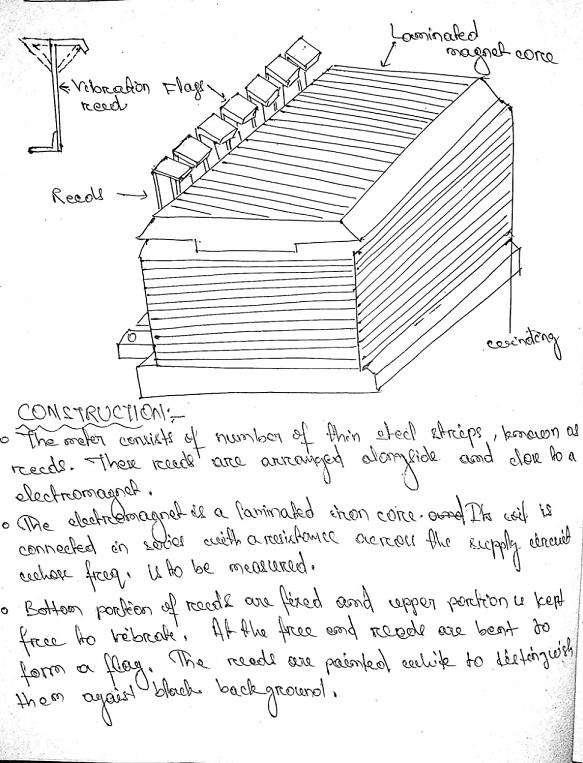 Laminated
magnet core
Vibration
reed
Flags
Reeds
winding
CONSTRUCTION:-
The meter consists of number of thin steel strips, known as
reeds. These reeds are arranged alongside and close to a
electromagnet.
The electromagnet is a laminated iron core. and Its coil is
connected in series with a resistance across the supply circuit
whose freq. is to be measured.
Bottom portion of reeds are fixed and upper portion is kept
free to vibrate. At the free end reeds are bent to
form a flag. The reeds are painted white to distinguish
them against black background.